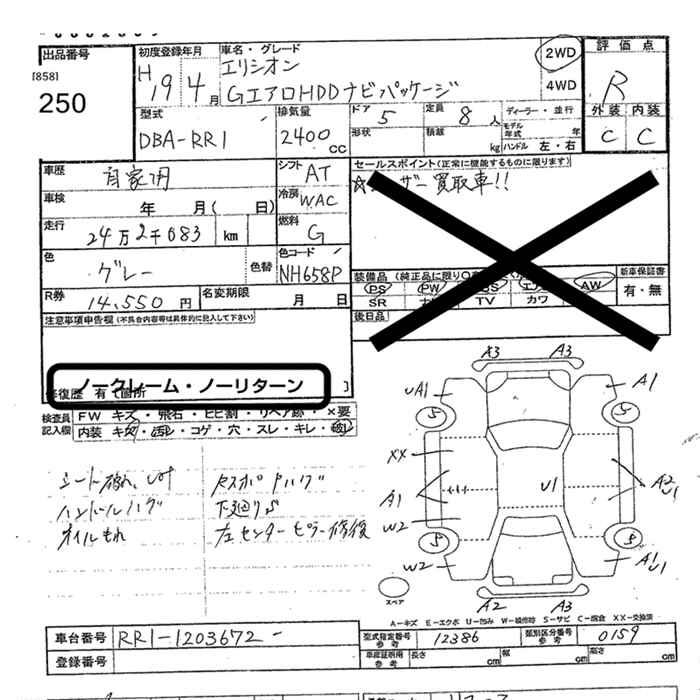 出品番号
[858]
250
初度登録年月
H 19 4月
車名・グレード
エリシオン
GエアロHDDナビパッケージ
2WD
4WD
評価点
R
外装 内装
C C
型式
DBA-RR1
排気量
2400 cc
ドア 5
定員 8人
ディーラー・並行
形状
積載 kg
モデル年式 年
ハンドル 左・右
車歴
自家用
シフト AT
セールスポイント(正常に機能するものに限ります)
ザー買取車!!
車検
年 月( 日)
冷房 WAC
走行
24万2千083 km
燃料 G
色
グレー
色替
色コード
NH658P
装備品(純正品に限り
新車保証書
有・無
PS PW AW
SR TV カワ
R券
14,550円
名変期限
月 日
後日品
注意事項申告欄(不具合内容等は具体的に記入して下さい)
ノークレーム・ノーリターン
修復歴 有 箇所
検査員記入欄
FW キズ・飛石・ヒビ割・リペア跡・×要
内装 キズ・汚レ・コゲ・穴・スレ・キレ・破レ
シート破れ、
ハンドルハゲ
オイルもれ
下廻りS
左センターピラー修復
A3 A3
UA1 A1
S S
XX
A1 U1 A2 U1
W2
S S
W2 A1 U1
スペア
A2 A3
A-キズ E-エクボ U-凹み W-補修跡 S-サビ C-腐食 XX-交換済
車台番号
RR1-1203672-
型式指定番号 参考
12386
類別区分番号 参考
0159
登録番号
車庫証明用 参考
長さ cm 幅 cm 高さ cm